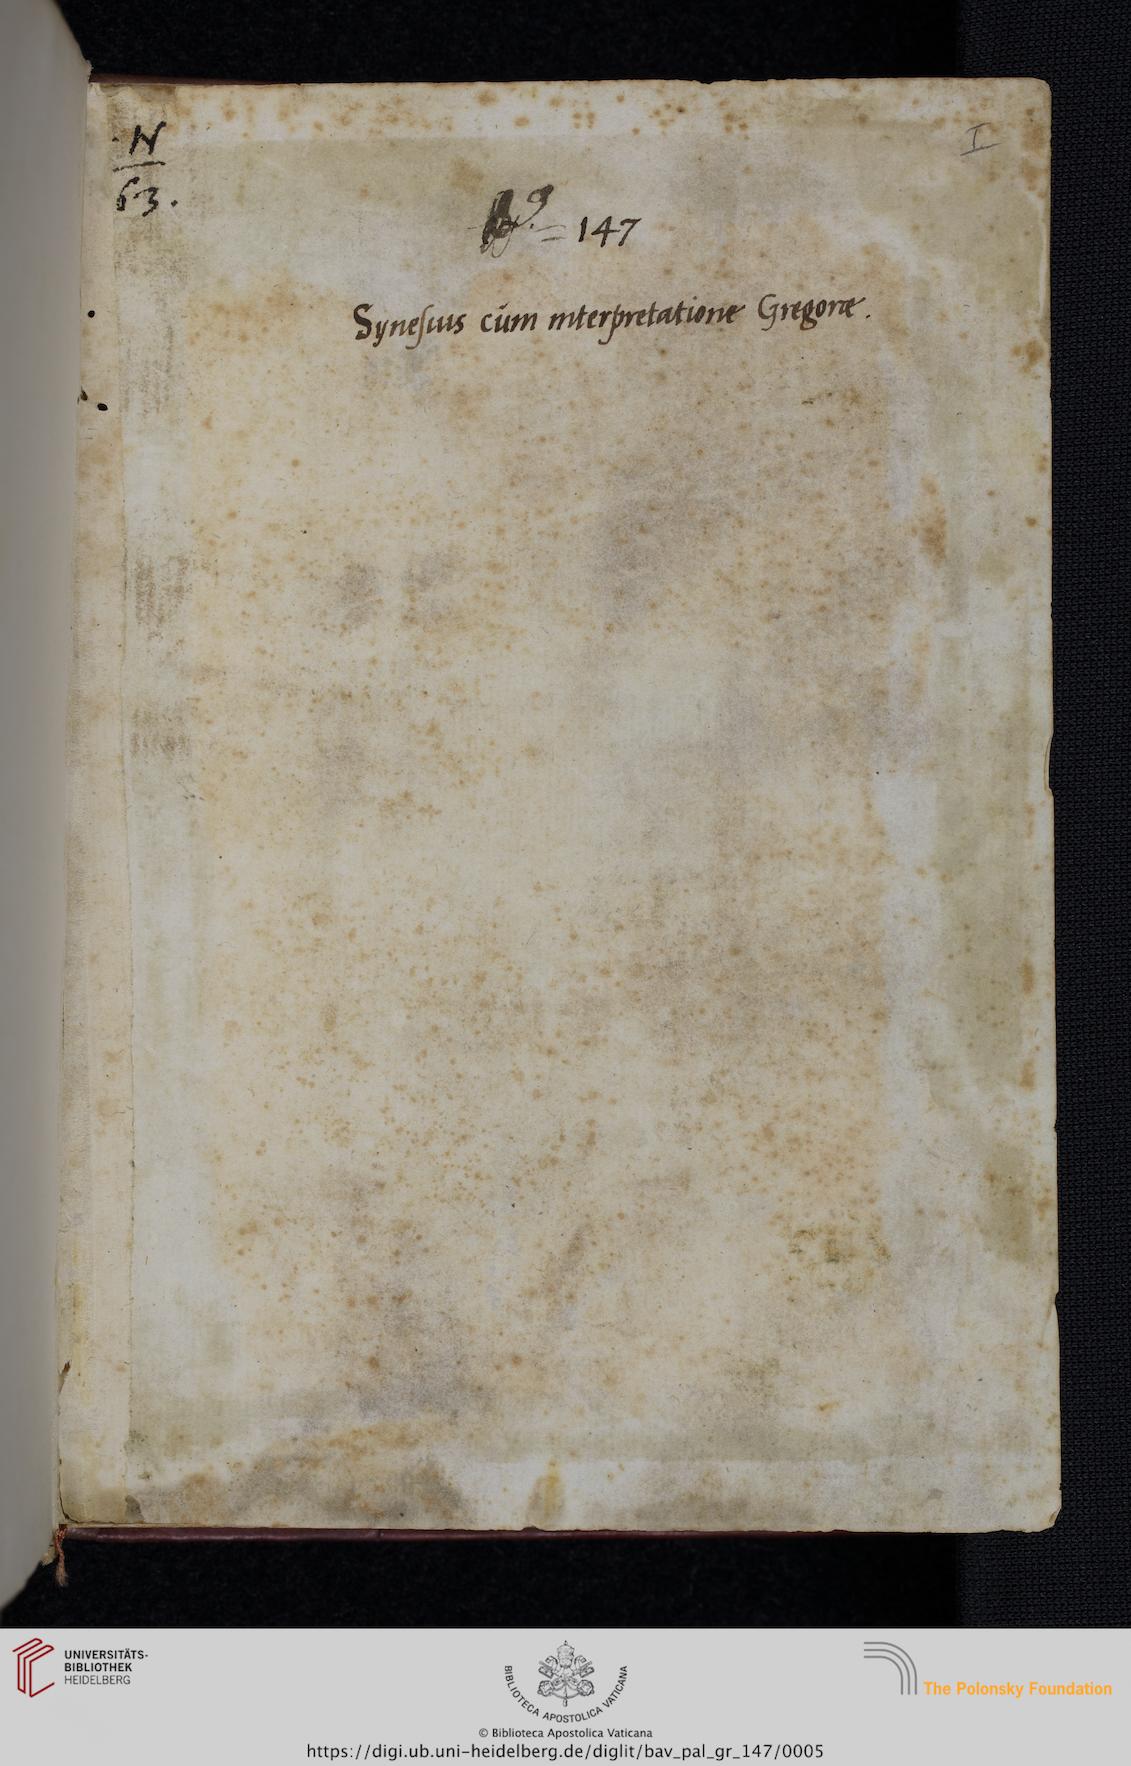 N
63.
I
147
Synesius cum interpretatione Gregoræ.
UNIVERSITÄTS-
BIBLIOTHEK
HEIDELBERG
BIBLIOTECA APOSTOLICA VATICANA
The Polonsky Foundation
© Biblioteca Apostolica Vaticana
https://digi.ub.uni-heidelberg.de/diglit/bav_pal_gr_147/0005